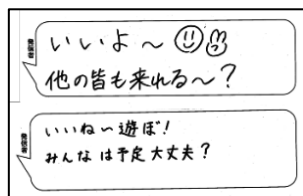 発信者
いいよ～
他の皆も来れる～？
発信者
いいね～遊ぼ！
みんなは予定大丈夫？